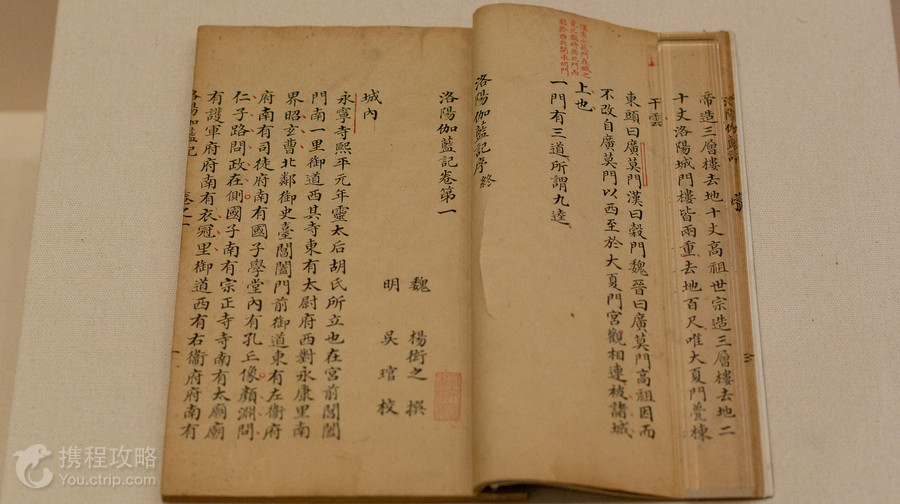 帝造三層樓去地十丈高祖世宗造三層樓去地二
十丈洛陽城門樓皆兩重去地百尺唯大夏門甍棟
干雲
東頭曰廣莫門漢曰穀門魏晉曰廣莫門高祖因而
不改自廣莫門以西至於大夏門宮觀相連被諸城
上也
一門有三道所謂九逵
洛陽伽藍記序終
洛陽伽藍記卷第一
魏 楊衒之 撰
明 吳琯 校
城內
永寧寺熙平元年靈太后胡氏所立也在宮前閶闔
門南一里御道西其寺東有太尉府西對永康里南
界昭玄曹北鄰御史臺閶闔門前御道東有左衞府
府南有司徒府南有國子學堂內有孔丘像顏淵問
仁子路問政在側國子南有宗正寺寺南有太廟廟
有護軍府府南有衣冠里御道西有右衞府府南有
洛陽伽藍記 卷之一 一
携程攻略
You.ctrip.com